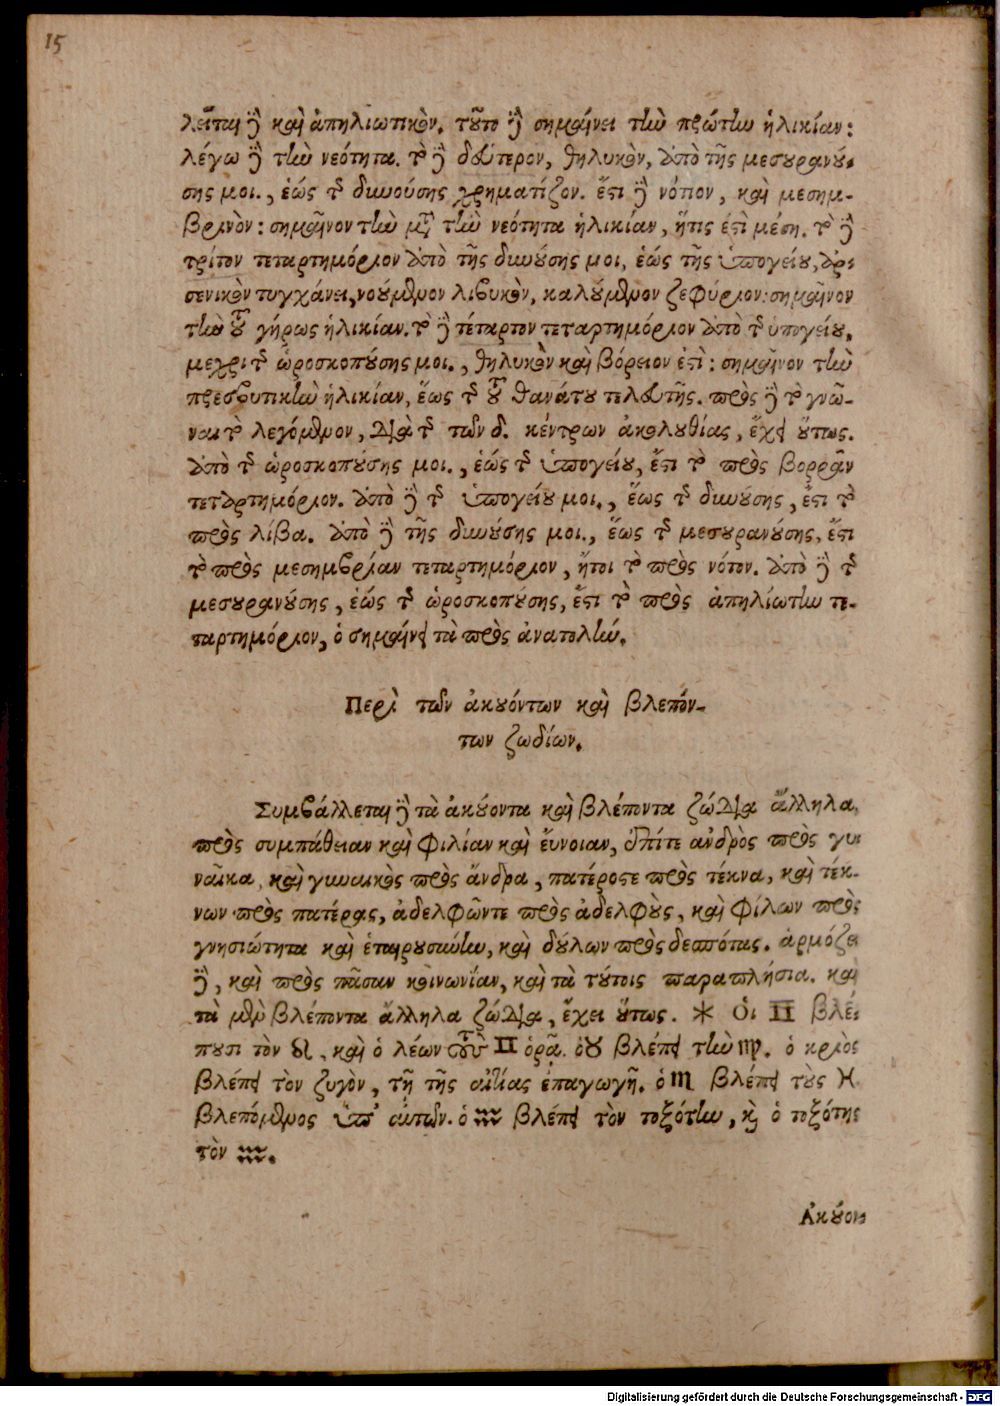 15
λεῖται δὲ καὶ ἀπηλιωτικὸν. τοῦτο δὲ σημαίνει τὴν πρώτην ἡλικίαν:
λέγω δὲ τὴν νεότητα. τὸ δὲ δεύτερον, θηλυκὸν, ἀπὸ τῆς μεσουρανού-
σης μοι., ἑώς τῆς δυνούσης χρηματίζον. ἔστι δὲ νότιον, καὶ μεσημ-
βρινὸν: σημαῖνον τὴν μετὰ τὴν νεότητα ἡλικίαν, ἥτις ἐστὶ μέση. τὸ δὲ
τρίτον τεταρτημόριον ἀπὸ τῆς δυνούσης μοι, ἑώς τῆς ὑπογείου, ἀρ-
σενικὸν τυγχάνει, νούμενον λιβυκὸν, καλούμενον ζεφύριον: σημαῖνον
τὴν τοῦ γήρως ἡλικίαν. τὸ δὲ τέταρτον τεταρτημόριον ἀπὸ τῆς ὑπογείου,
μεχρι τῆς ὡροσκοπούσης μοι., θηλυκὸν καὶ βόρειον ἐστὶ: σημαῖνον τὴν
πρεσβυτικὴν ἡλικίαν, ἕως τῆς τοῦ θανάτου τελευτῆς. πρὸς δὲ τὸ γνῶ-
ναι τὸ λεγόμενον, διὰ τῆς τῶν δ. κέντρων ἀκολυθίας, ἔχει οὕτως.
ἀπὸ τῆς ὡροσκοπούσης μοι., ἑώς τῆς ὑπογείου, ἔστι τὸ πρὸς βορρᾶν
τεταρτημόριον. ἀπὸ δὲ τῆς ὑπογείου μοι., ἕως τῆς δυνούσης, ἔστι τὸ
πρὸς λίβα. ἀπὸ δὲ τῆς δυνούσης μοι., ἕως τῆς μεσουρανούσης, ἔστι
τὸ πρὸς μεσημβρίαν τεταρτημόριον, ἤτοι τὸ πρὸς νότον. ἀπὸ δὲ τῆς
μεσουρανούσης, ἑώς τῆς ὡροσκοπούσης, ἔστι τὸ πρὸς ἀπηλίωτην τε-
ταρτημόριον, ὁ σημαίνει τὰ πρὸς ἀνατολὴν.
Περὶ τῶν ἀκουόντων καὶ βλεπόν-
των ζωδίων.
Συμβάλλεται δὲ τὰ ἀκούοντα καὶ βλέποντα ζώδια ἄλληλα,
πρὸς συμπάθειαν καὶ φιλίαν καὶ ἔυνοιαν, ἐπίτε ανδρὸς πρὸς γυ-
ναῖκα, καὶ γυναικὸς πρὸς ἄνδρα, πατέροστε πρὸς τέκνα, καὶ τέκ-
νων πρὸς πατέρας, ἀδελφῶντε πρὸς ἀδελφοὺς, καὶ φίλων πρὸς
γνησιώτητα καὶ ἑταιροσύνην, καὶ δούλων πρὸς δεσπότας. ἁρμόζει
δὲ, καὶ πρὸς πᾶσαν κοινωνίαν, καὶ τὰ τούτοις παραπλήσια. καὶ
τὰ μὲν βλέποντα ἄλληλα ζώδια, ἔχει οὕτως. * Ὁι ♊ βλέ-
πουσι τὸν ♌, καὶ ὁ λέων τοὺς ♊ ὁρᾶ. ὁ ♉ βλέπει τὴν ♍. ὁ κριὸς
βλέπει τὸν ζυγὸν, τῆ τῆς αἰτίας ἐπαγωγῆ. ὁ ♏ βλέπει τοὺς ♓
βλεπόμενος ὑπ' αὐτῶν. ὁ ♒ βλέπει τὸν τοξότην, καὶ ὁ τοξότης
τὸν ♒.
Ἀκούου
Digitalisierung gefördert durch die Deutsche Forschungsgemeinschaft - DFG